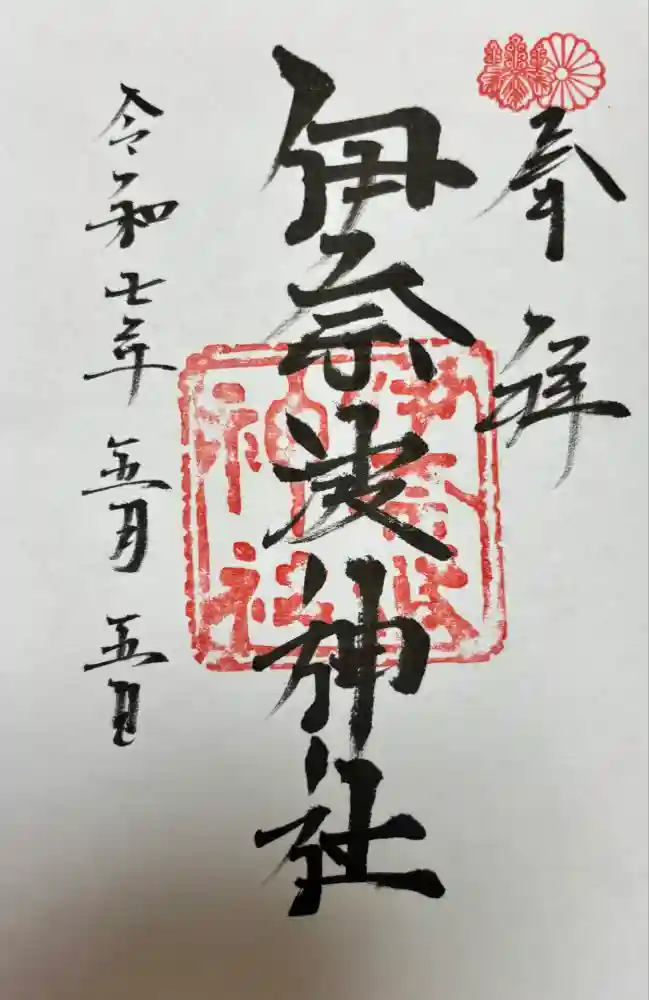 奉拝
伊奈波神社
伊奈波
神社
令和七年五月五日